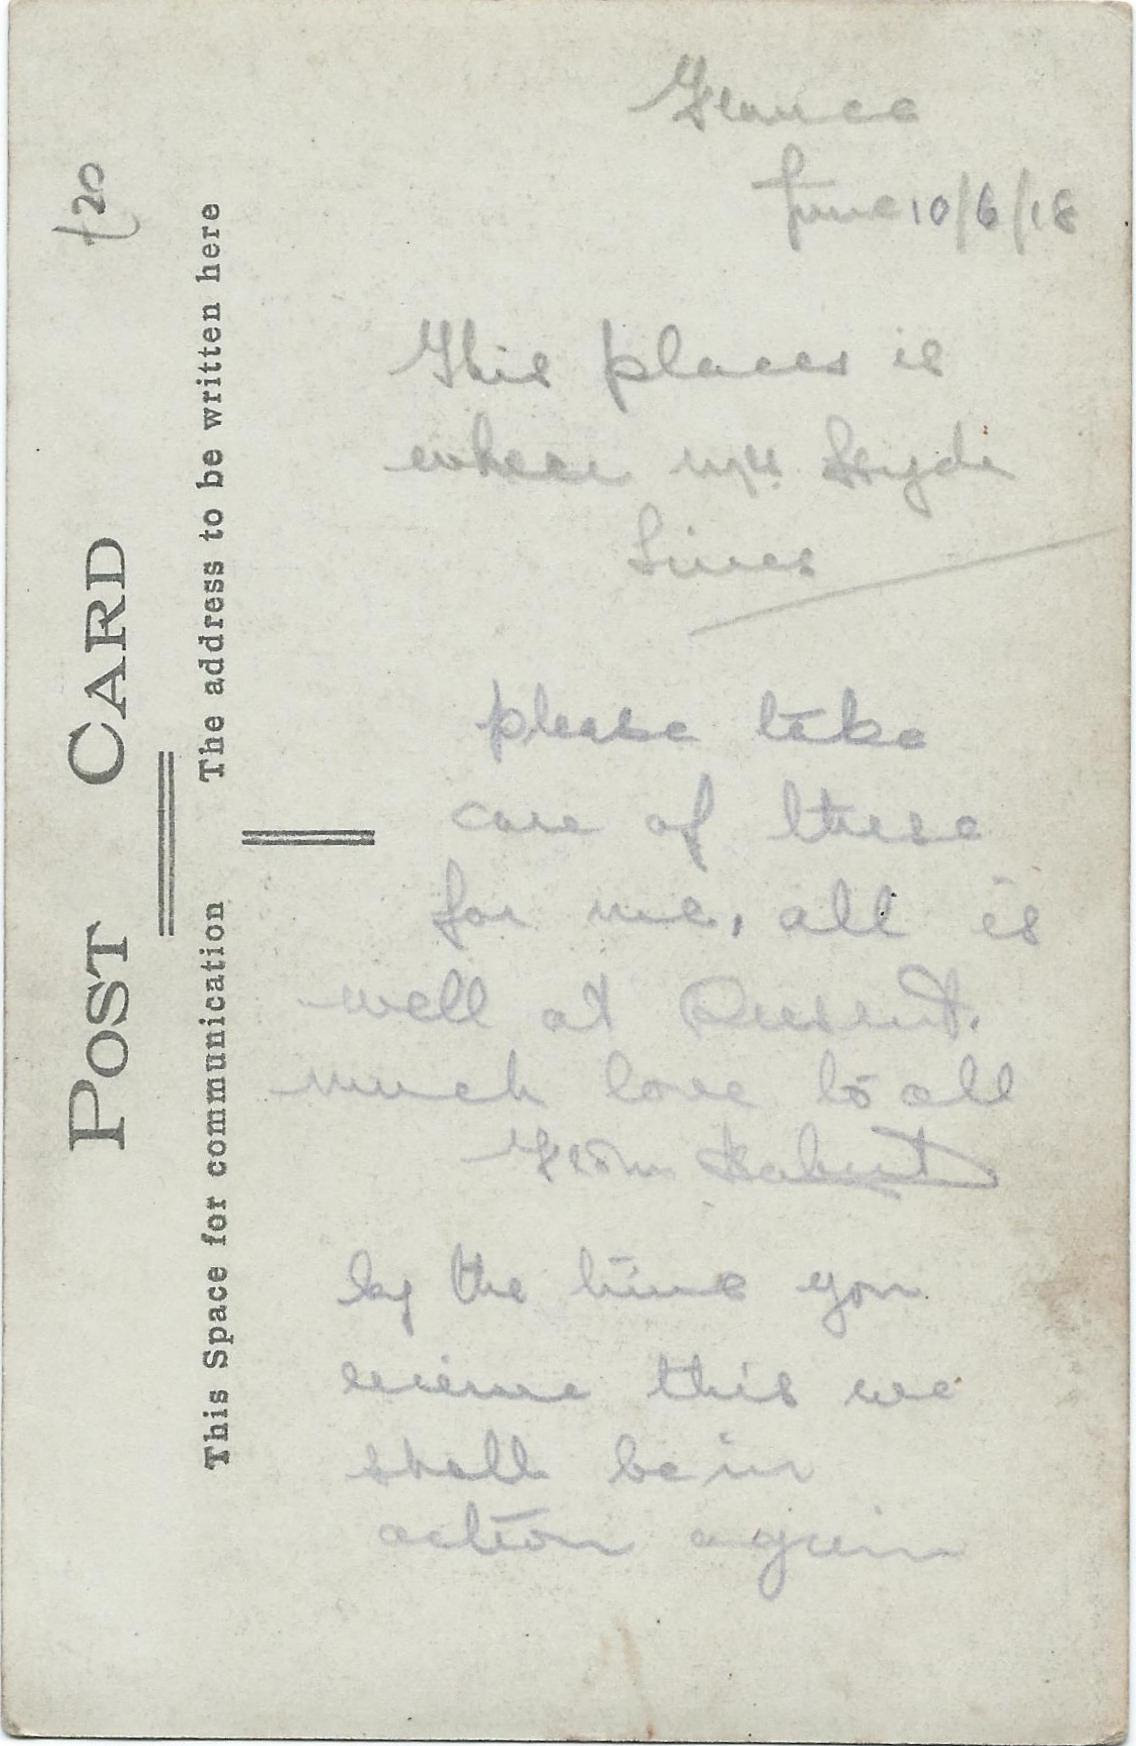 POST CARD
This Space for communication
The address to be written here
£20
France
June 10/6/18
This places is
where Mrs. Hyde
Lives
please take
care of these
for me, all is
well at Present.
much love to all
From
by the time you
recieve this we
shall be in
action again